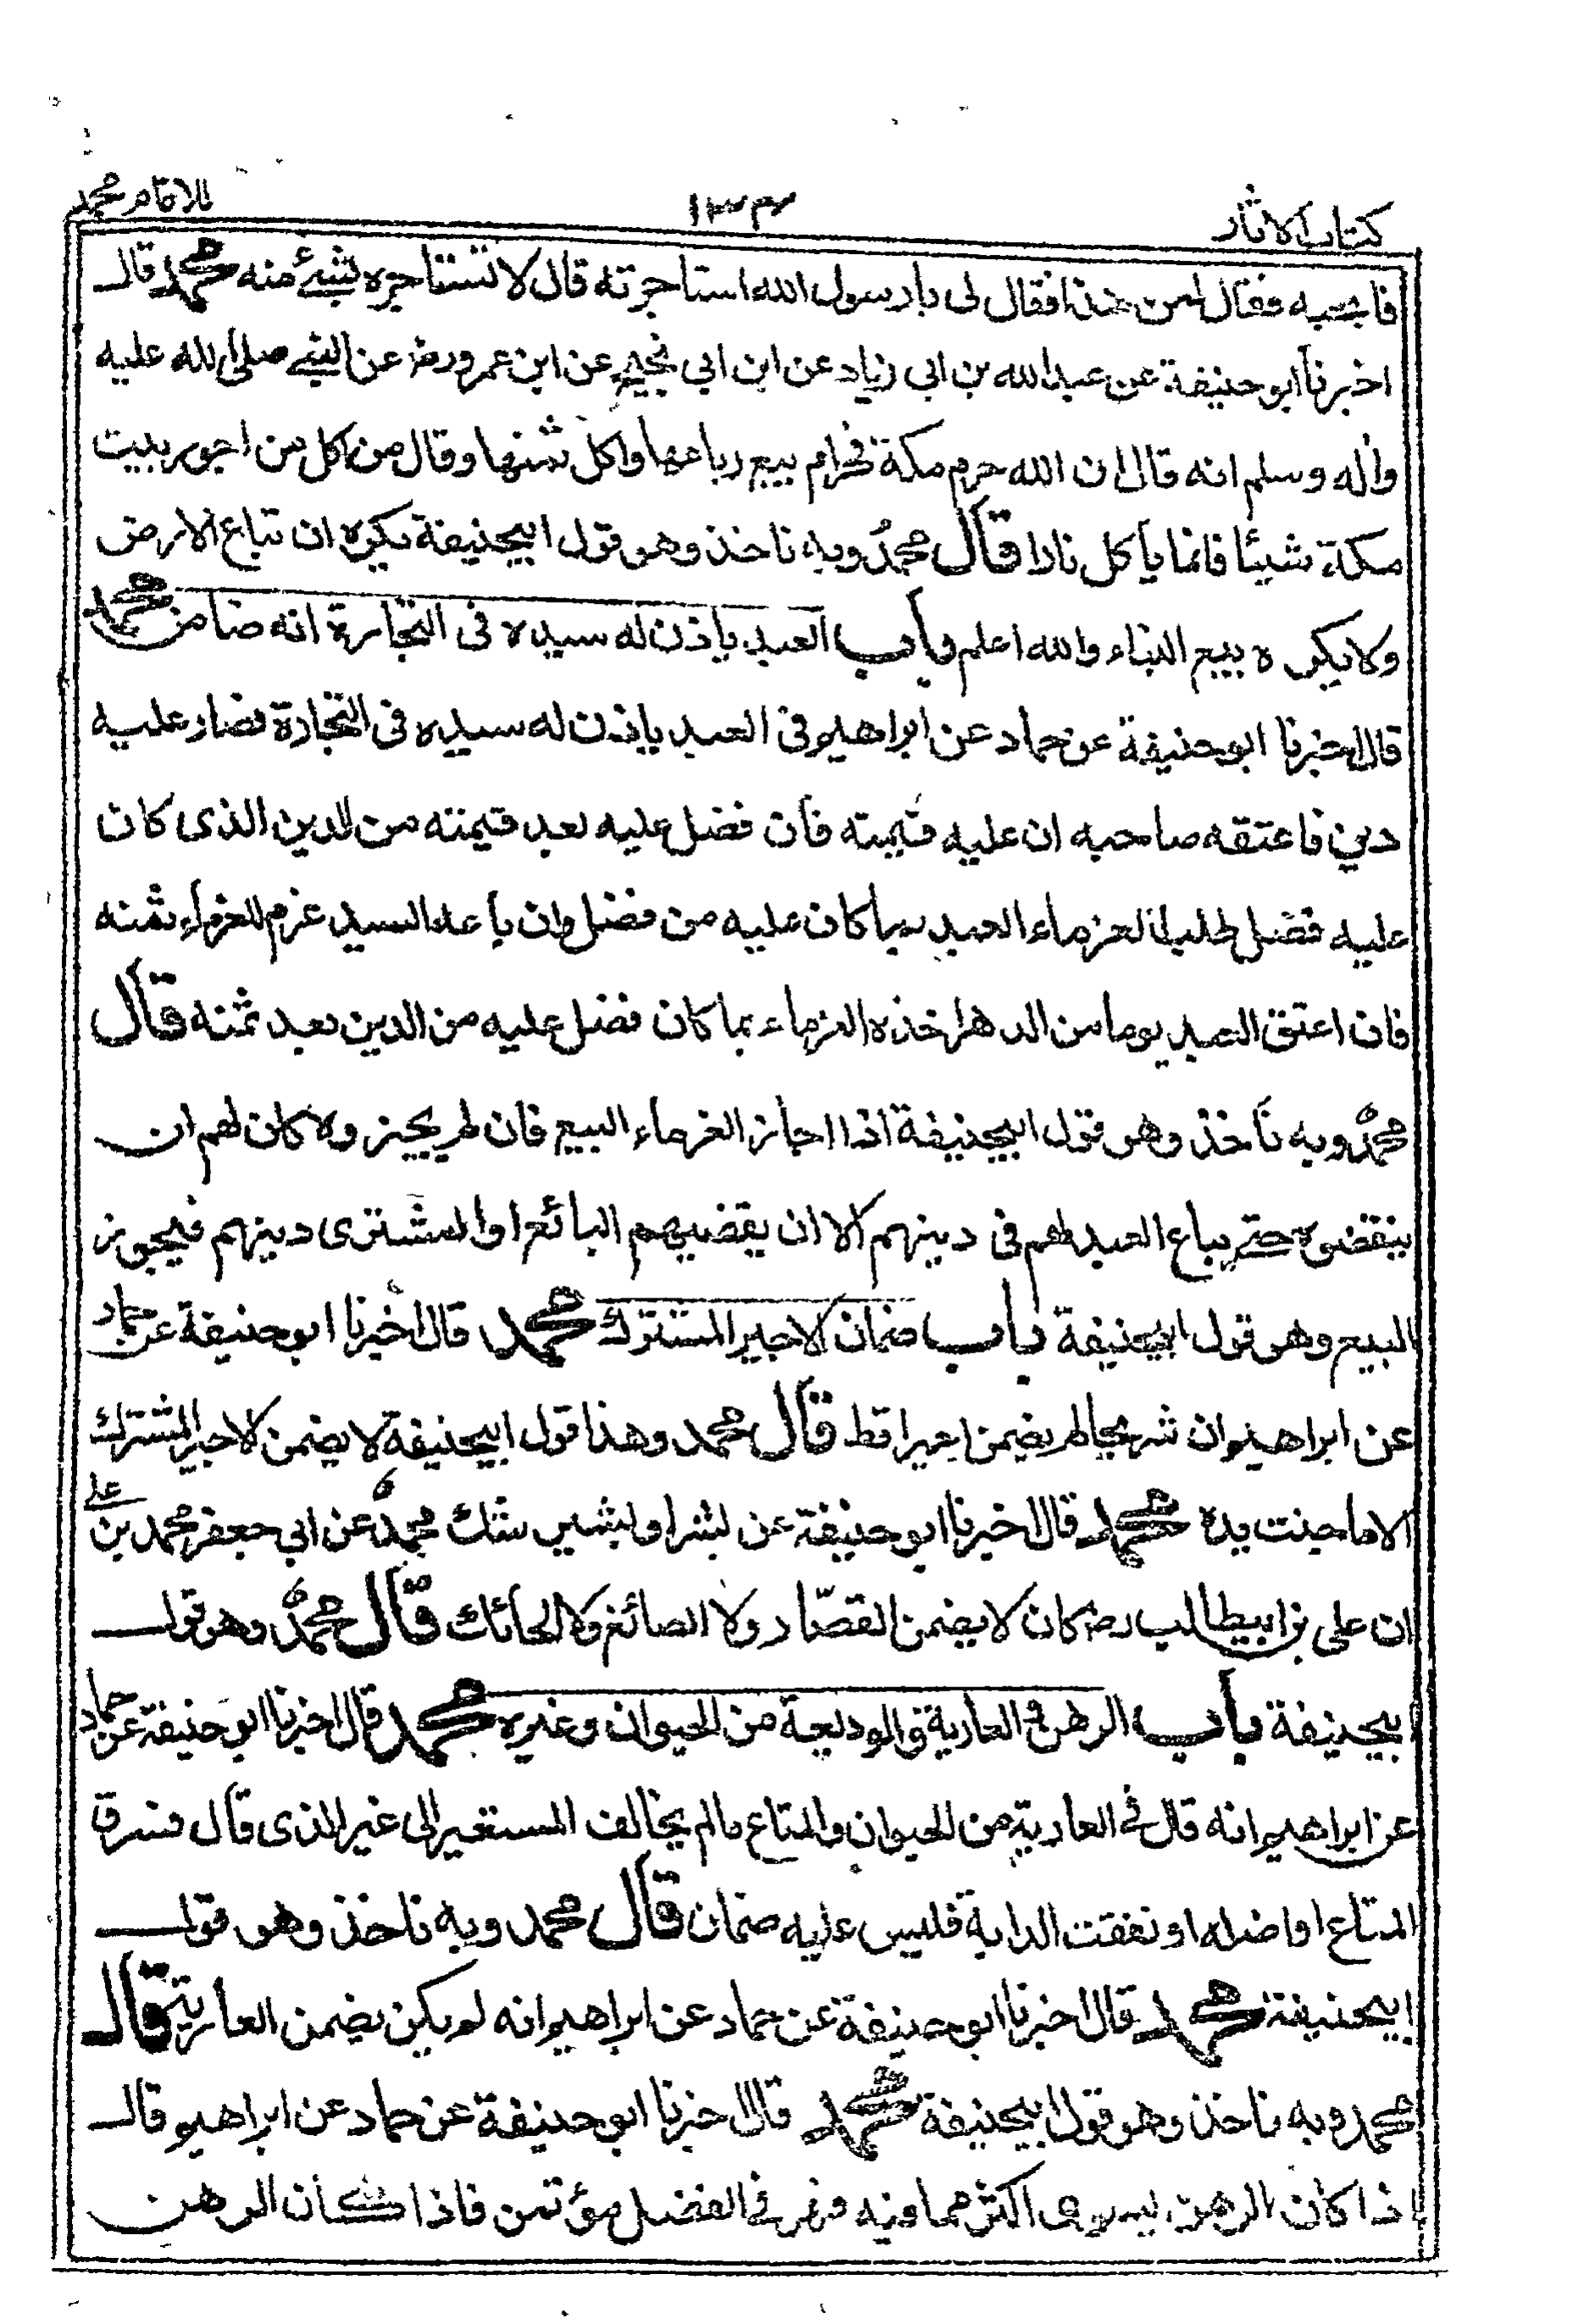 كتاب الاثار ١٣٤ للامام محمد
فاعجبه فقال لمن هذا فقال لى يا رسول الله استاجرته قال لا تستاجره بشئ منه محمد قال
اخبرنا ابو حنيفة عن عبد الله بن ابى زياد عن ابن ابى نجيح عن ابن عمرو رض عن النبى صلى الله عليه
واله وسلم انه قال ان الله حرم مكة فحرام بيع رباعها واكل ثمنها وقال من اكل من اجور بيت
مكة شيئا فانما ياكل نارا قال محمد وبه ناخذ وهو قول ابيحنيفة يكره ان تباع الارض
ولا يكره بيع البناء والله اعلم باب العبد ياذن له سيده فى التجارة انه ضامن محمد
قال اخبرنا ابو حنيفة عن حماد عن ابراهيم فى العبد ياذن له سيده فى التجارة فصار عليه
دين فاعتقه صاحبه ان عليه قيمته فان فضل عليه بعد قيمته من الدين الذى كان
عليه فضل طلب الغرماء العبد بما كان عليه من فضل وان باعه السيد غرم للغرماء ثمنه
فان اعتق العبد يوما من الدهر اخذه الغرماء بما كان فضل عليه من الدين بعد ثمنه قال
محمد وبه ناخذ وهو قول ابيحنيفة اذا اجاز الغرماء البيع فان لم يجيزوه كان لهم ان
ينقضوه حتى يباع العبد لهم فى دينهم الا ان يقضيهم البائع او المشترى دينهم فيجوز
البيع وهو قول ابيحنيفة باب ضمان الاجير المشترك محمد قال اخبرنا ابو حنيفة عن حماد
عن ابراهيم ان شريحا لم يضمن اجيرا قط قال محمد وهذا قول ابيحنيفة لا يضمن الاجير المشترك
الا ما جنت يده محمد قال اخبرنا ابو حنيفة عن بشر او بشير شك محمد عن ابى جعفر محمد بن على
ان على بن ابيطالب رض كان لا يضمن القصار ولا الصائغ ولا الحائك قال محمد وهو قول
ابيحنيفة باب الرهن والعارية والوديعة من الحيوان وغيره محمد قال اخبرنا ابو حنيفة عن حماد
عن ابراهيم انه قال فى العارية من الحيوان والمتاع مالم يخالف المستعير الى غير الذى قال فسرق
المتاع او اضله او نفقت الدابة فليس عليه ضمان قال محمد وبه ناخذ وهو قول
ابيحنيفة محمد قال اخبرنا ابو حنيفة عن حماد عن ابراهيم انه لم يكن يضمن العارية قال
محمد وبه ناخذ وهو قول ابيحنيفة محمد قال اخبرنا ابو حنيفة عن حماد عن ابراهيم قال
اذا كان الرهن يسوى اكثر مما فيه فهو فى الفضل مؤتمن فاذا كان الرهن